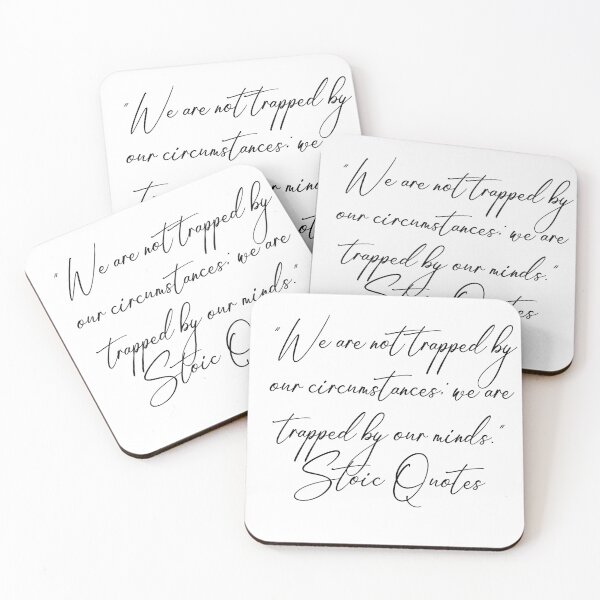 "We are not trapped by
our circumstances; we
"We are not trapped by
our circumstances; we are
trapped by our minds."
Stoic Quotes
"We are not trapped by
our circumstances; we are
trapped by our minds."
Stoic
"We are not trapped by
our circumstances; we are
trapped by our minds."
Stoic Quotes